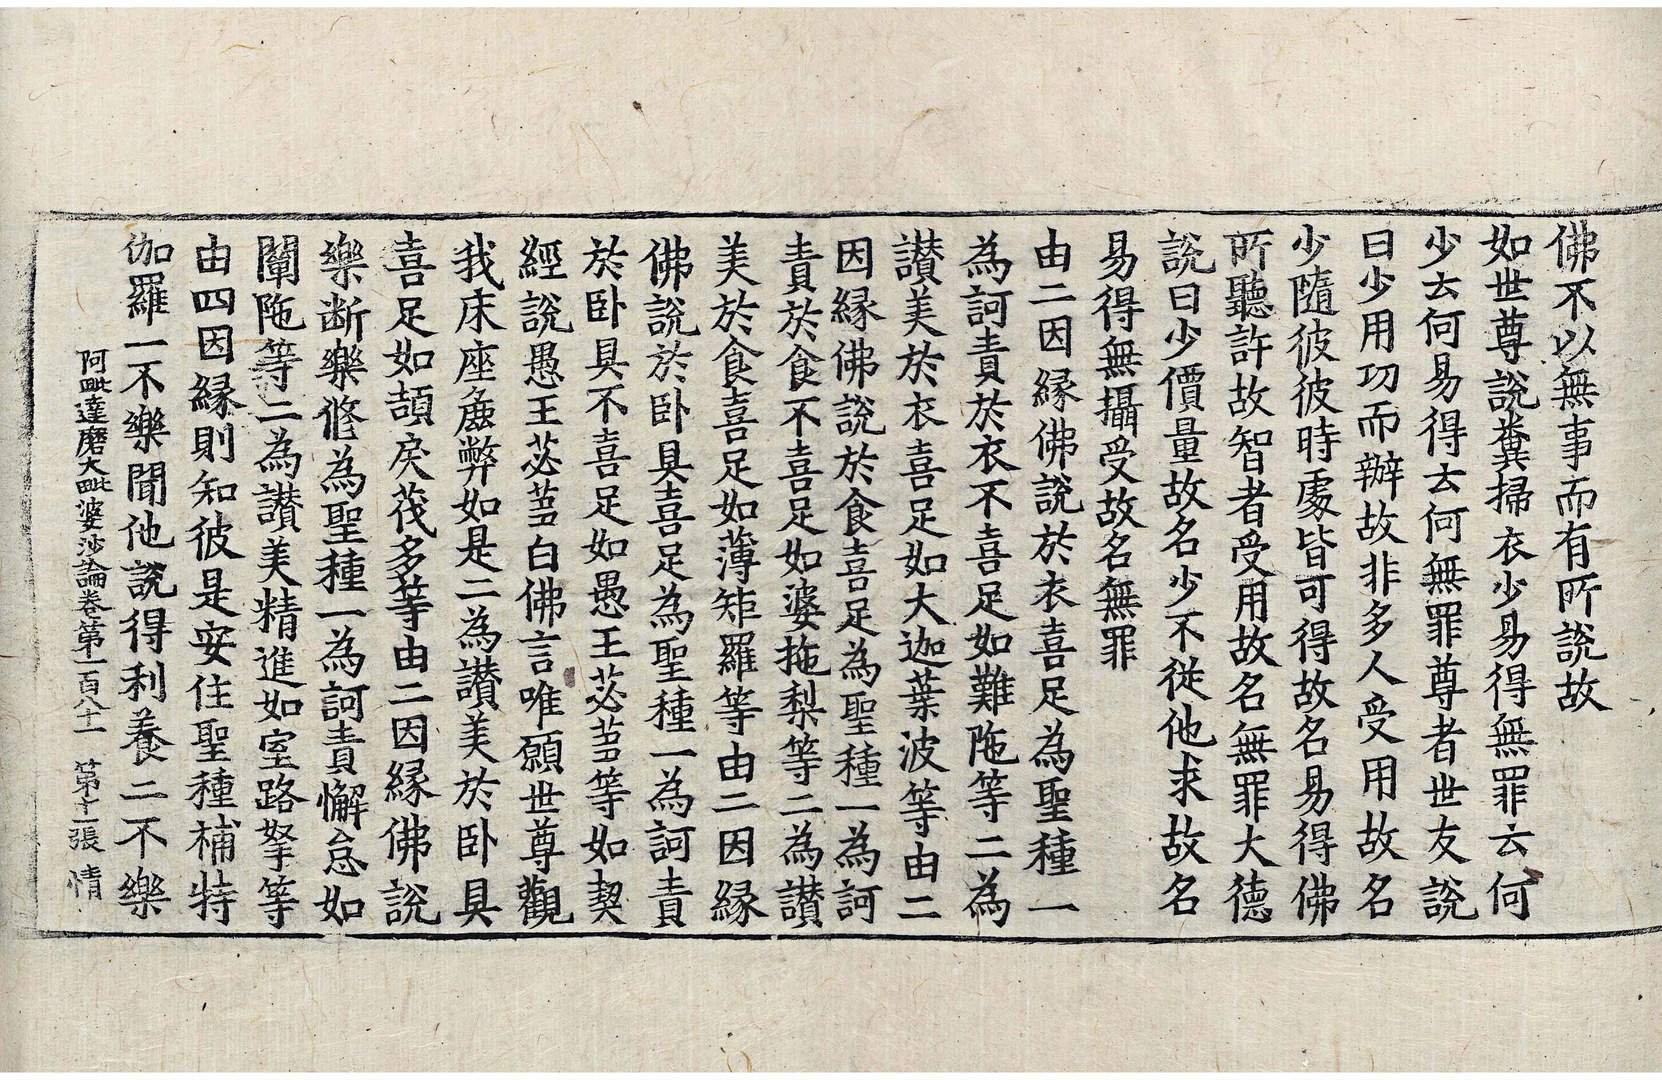 佛不以無事而有所說故
如世尊說糞掃衣少易得無罪云何
少云何易得云何無罪尊者世友說
曰少用功而辦故非多人受用故名
少隨彼彼時處皆可得故名易得佛
所聽許故智者受用故名無罪大德
說曰少價量故名少不從他求故名
易得無攝受故名無罪
由二因緣佛說於衣喜足為聖種一
為訶責於衣不喜足如難陁等二為
讃美於衣喜足如大迦葉波等由二
因緣佛說於食喜足為聖種一為訶
責於食不喜足如婆拖梨等二為讃
美於食喜足如薄矩羅等由二因緣
佛說於卧具喜足為聖種一為訶責
於卧具不喜足如愚王苾芻等如契
經說愚王苾芻白佛言唯願世尊觀
我床座麁弊如是二為讃美於卧具
喜足如頡戾茷多等由二因緣佛說
樂断樂修為聖種一為訶責懈怠如
闡陁等二為讃美精進如室路拏等
由四因緣則知彼是安住聖種補特
伽羅一不樂聞他說得利養二不樂
阿毗達磨大毗婆沙論卷第一百八十一 第十一張 情